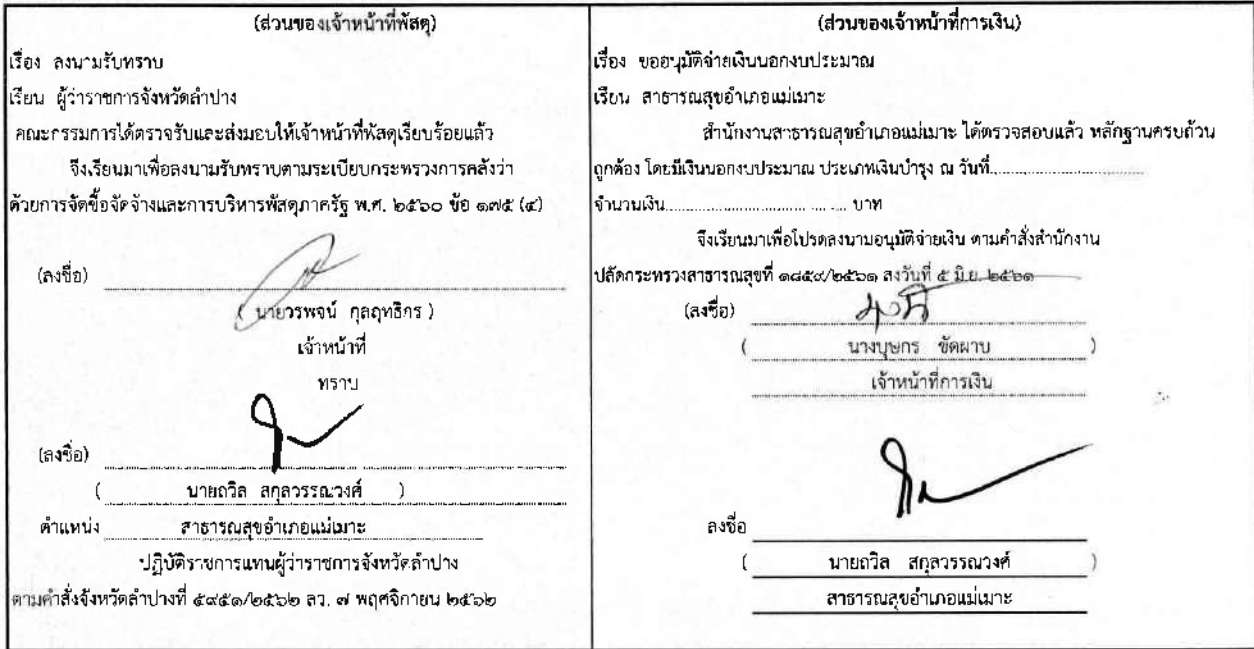 (ส่วนของเจ้าหน้าที่พัสดุ)
เรื่อง ลงนามรับทราบ
เรียน ผู้ว่าราชการจังหวัดลำปาง
คณะกรรมการได้ตรวจรับและส่งมอบให้เจ้าหน้าที่พัสดุเรียบร้อยแล้ว
จึงเรียนมาเพื่อลงนามรับทราบตามระเบียบกระทรวงการคลังว่า
ด้วยการจัดซื้อจัดจ้างและการบริหารพัสดุภาครัฐ พ.ศ. ๒๕๖๐ ข้อ ๑๗๕ (๔)
(ลงชื่อ)
( นายวรพจน์ กุลฤทธิกร )
เจ้าหน้าที่
ทราบ
(ลงชื่อ)
( นายถวิล สกุลวรรณวงศ์ )
ตำแหน่ง สาธารณสุขอำเภอแม่เมาะ
ปฏิบัติราชการแทนผู้ว่าราชการจังหวัดลำปาง
ตามคำสั่งจังหวัดลำปางที่ ๕๙๕๑/๒๕๖๒ ลว. ๗ พฤศจิกายน ๒๕๖๒
(ส่วนของเจ้าหน้าที่การเงิน)
เรื่อง ขออนุมัติจ่ายเงินนอกงบประมาณ
เรียน สาธารณสุขอำเภอแม่เมาะ
สำนักงานสาธารณสุขอำเภอแม่เมาะ ได้ตรวจสอบแล้ว หลักฐานครบถ้วน
ถูกต้อง โดยมีเงินนอกงบประมาณ ประเภทเงินบำรุง ณ วันที่..............................
จำนวนเงิน.............................. บาท
จึงเรียนมาเพื่อโปรดลงนามอนุมัติจ่ายเงิน ตามคำสั่งสำนักงาน
ปลัดกระทรวงสาธารณสุขที่ ๑๘๕๙/๒๕๖๑ ลงวันที่ ๕ มิ.ย. ๒๕๖๑
(ลงชื่อ)
( นางบุษกร ขัดผาบ )
เจ้าหน้าที่การเงิน
ลงชื่อ
( นายถวิล สกุลวรรณวงศ์ )
สาธารณสุขอำเภอแม่เมาะ